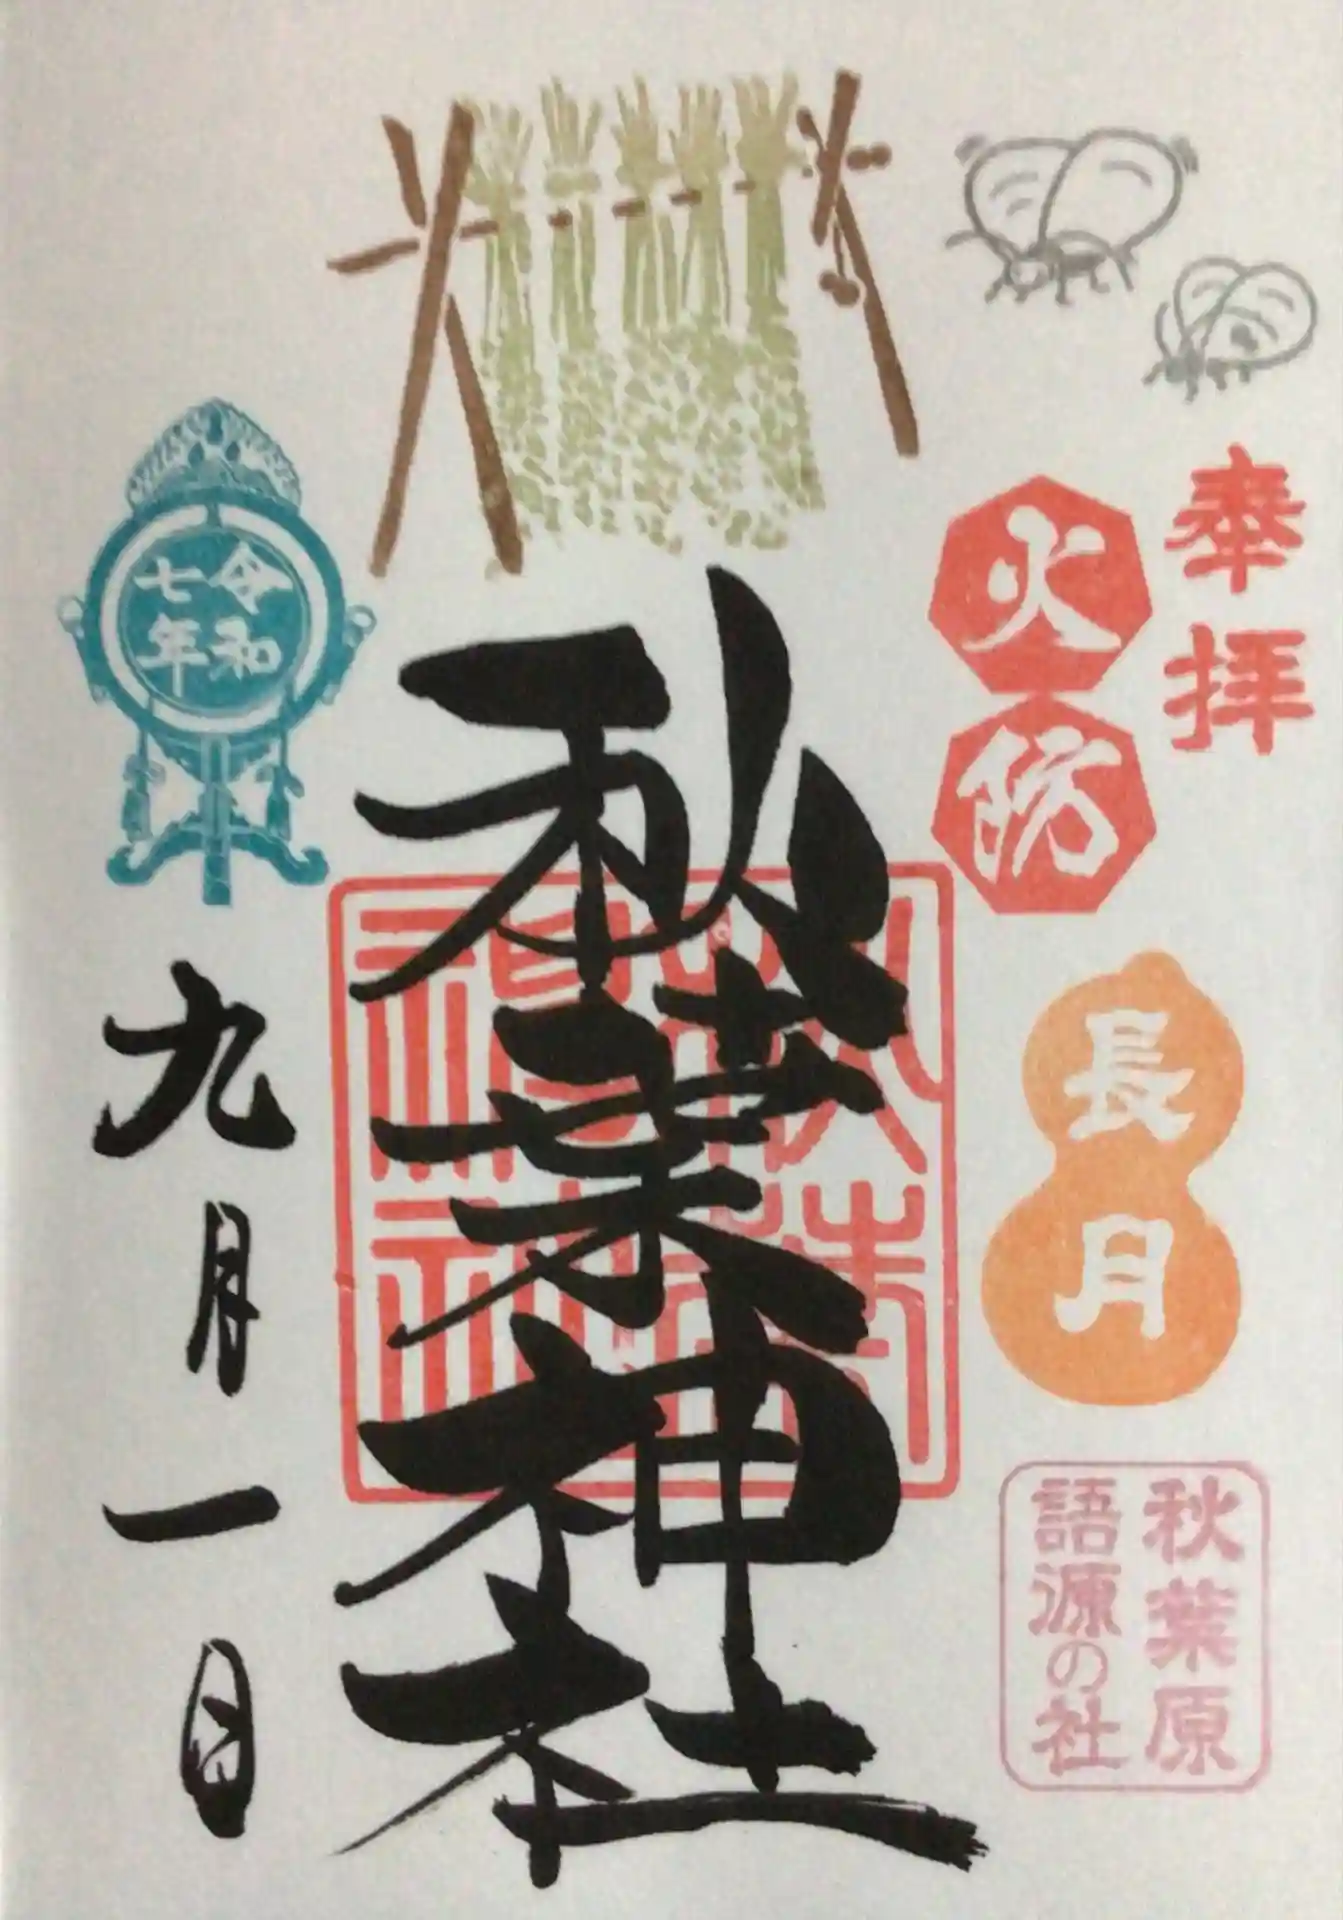 奉拝
火防
長月
秋葉原
語源の社
秋葉神社
秋葉
神社
令和
七年
九月一日